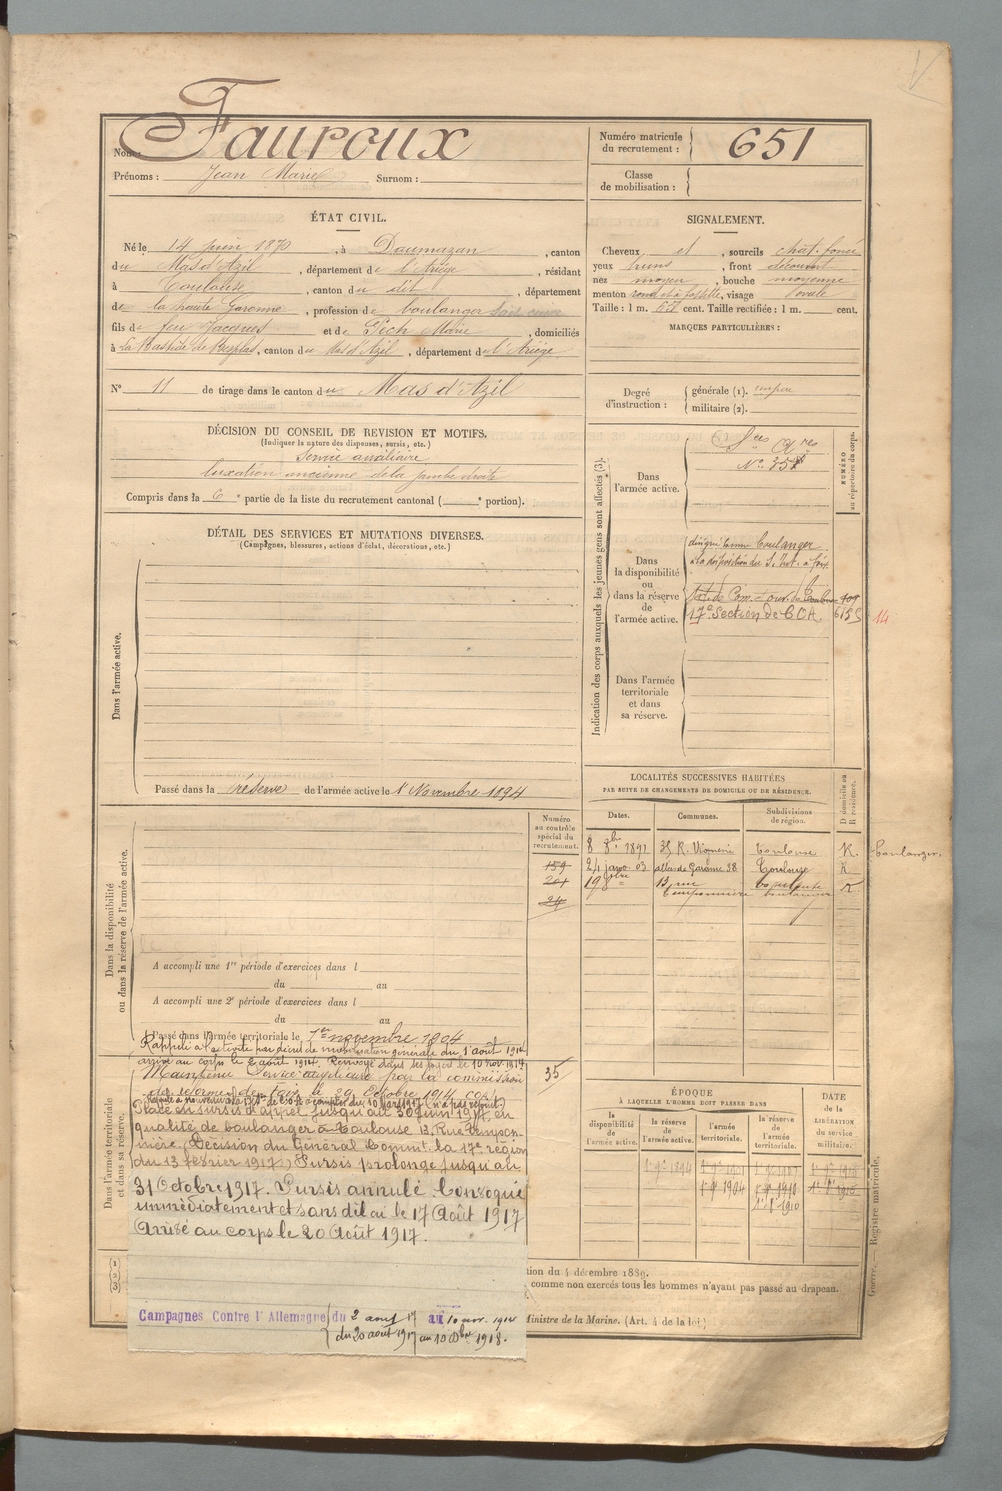 Nom : Fauroux
Prénoms : Jean Marie Surnom :
Numéro matricule du recrutement : 651
Classe de mobilisation :
ÉTAT CIVIL.
Né le 14 juin 1870, à Daumazan, canton
du Mas d'Azil, département de l'Ariège, résidant
à Toulouse, canton du dit, département
de la haute Garonne, profession de boulanger
fils de feu Jacques et de Pech Marie, domiciliés
à La Bastide de Besplas, canton du Mas d'Azil, département de l'Ariège
N° 11 de tirage dans le canton du Mas d'Azil
SIGNALEMENT.
Cheveux et, sourcils chat. foncé
yeux bruns, front découvert
nez moyen, bouche moyenne
menton rond et à fossette, visage ovale
Taille : 1 m. 67 cent. Taille rectifiée : 1 m. cent.
MARQUES PARTICULIÈRES :
Degré d'instruction : générale (1).
militaire (2).
DÉCISION DU CONSEIL DE REVISION ET MOTIFS.
(Indiquer la nature des dispenses, sursis, etc.)
Service auxiliaire
luxation ancienne de la jambe droite
Compris dans la 6e partie de la liste du recrutement cantonal ( e portion).
DÉTAIL DES SERVICES ET MUTATIONS DIVERSES.
(Campagnes, blessures, actions d'éclat, décorations, etc.)
Dans l'armée active.
Passé dans la réserve de l'armée active le 1 Novembre 1894
Indication des corps auxquels les jeunes gens sont affectés (3).
NUMÉRO au répertoire du corps.
Dans l'armée active.
Dans la disponibilité ou dans la réserve de l'armée active.
désigné comme boulanger
à la disposition du S. Int. à Foix
17e Section de COA. 6155
14
Dans l'armée territoriale et dans sa réserve.
LOCALITÉS SUCCESSIVES HABITÉES
PAR SUITE DE CHANGEMENTS DE DOMICILE OU DE RÉSIDENCE.
D domicile ou R résidence.
Dates. Communes. Subdivisions de région.
8 8bre 1891 Toulouse R. boulanger.
24 janv 03 allée de Garonne 38 Toulouse R
13 rue R
Numéro au contrôle spécial du recrutement.
159
204
24
35
Dans la disponibilité ou dans la réserve de l'armée active.
A accompli une 1re période d'exercices dans l
du au
A accompli une 2e période d'exercices dans l
du au
Passé dans l'armée territoriale le 1er novembre 1904
Rappelé à l'activité par décret de mobilisation générale du 1 août 1914
arrivé au corps le 2 août 1914. Renvoyé dans ses foyers le 10 nov. 1914
Maintenu Service auxiliaire par la commission
de réforme de Foix le 29 Octobre 1914
Dans l'armée territoriale et dans sa réserve.
Placé en sursis d'appel jusqu'au 30 juin 1917 en
qualité de boulanger à Toulouse 13, Rue Tempon-
nière. (Décision du Général Commt. la 17e région
du 13 février 1917) Sursis prolongé jusqu'au
31 Octobre 1917. Sursis annulé. Convoqué
immédiatement et sans délai le 17 Août 1917
Arrivé au corps le 20 Août 1917.
Campagnes Contre l'Allemagne du 2 août 17 au 10 nov. 1914
du 20 août 1917 au 1918.
ÉPOQUE
À LAQUELLE L'HOMME DOIT PASSER DANS
la disponibilité de l'armée active. la réserve de l'armée active. l'armée territoriale. la réserve de l'armée territoriale.
DATE de la LIBÉRATION du service militaire.
tion du 4 décembre 1889.
comme non exercés tous les hommes n'ayant pas passé au drapeau.
Ministre de la Marine. (Art. 4 de la loi)
Guerre. — Registre matricule.